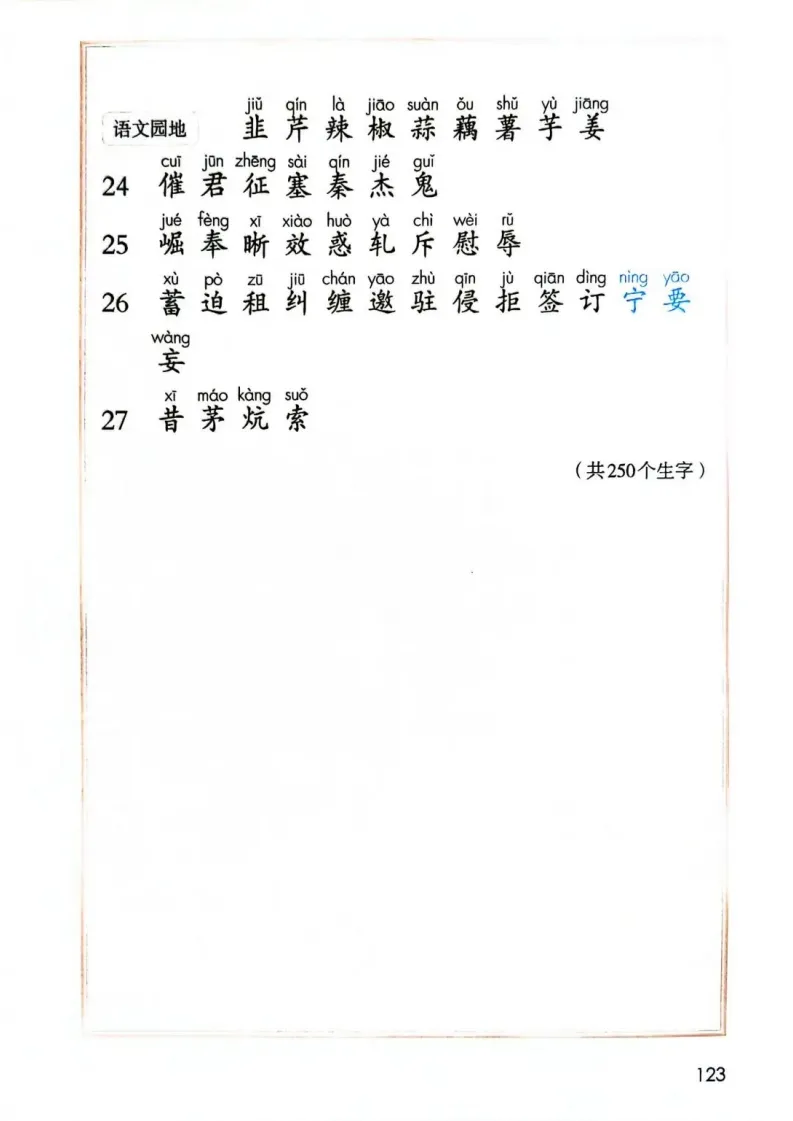 jiǔ qín là jiāo suàn ǒu shǔ yù jiāng
语文园地 韭 芹 辣 椒 蒜 藕 薯 芋 姜
cuī jūn zhēng sài qín jié guǐ
24 催 君 征 塞 秦 杰 鬼
jué fèng xī xiào huò yà chì wèi rǔ
25 崛 奉 晰 效 惑 轧 斥 慰 辱
xù pò zū jiū chán yāo zhù qīn jù qiān dìng nìng yāo
26 蓄 迫 租 纠 缠 邀 驻 侵 拒 签 订 宁 要
wàng
妄
xī máo kàng suǒ
27 昔 茅 炕 索
（共250个生字）
123